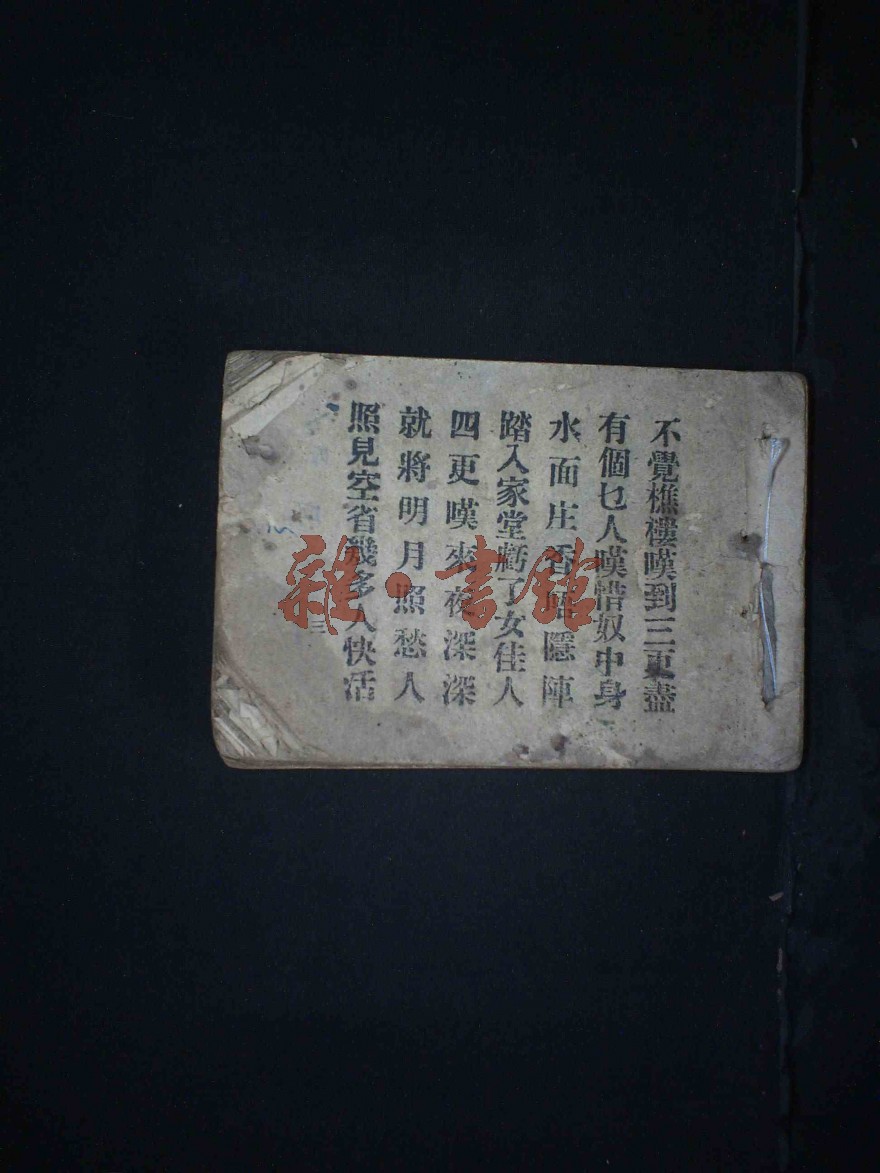 不覺樵樓嘆到三更盡
有個乜人嘆惜奴中身
水面庄香唔隱陣
踏入家堂虧了女佳人
四更嘆來夜深深
就將明月照愁人
照見空省幾多人快活
三
雜·書館